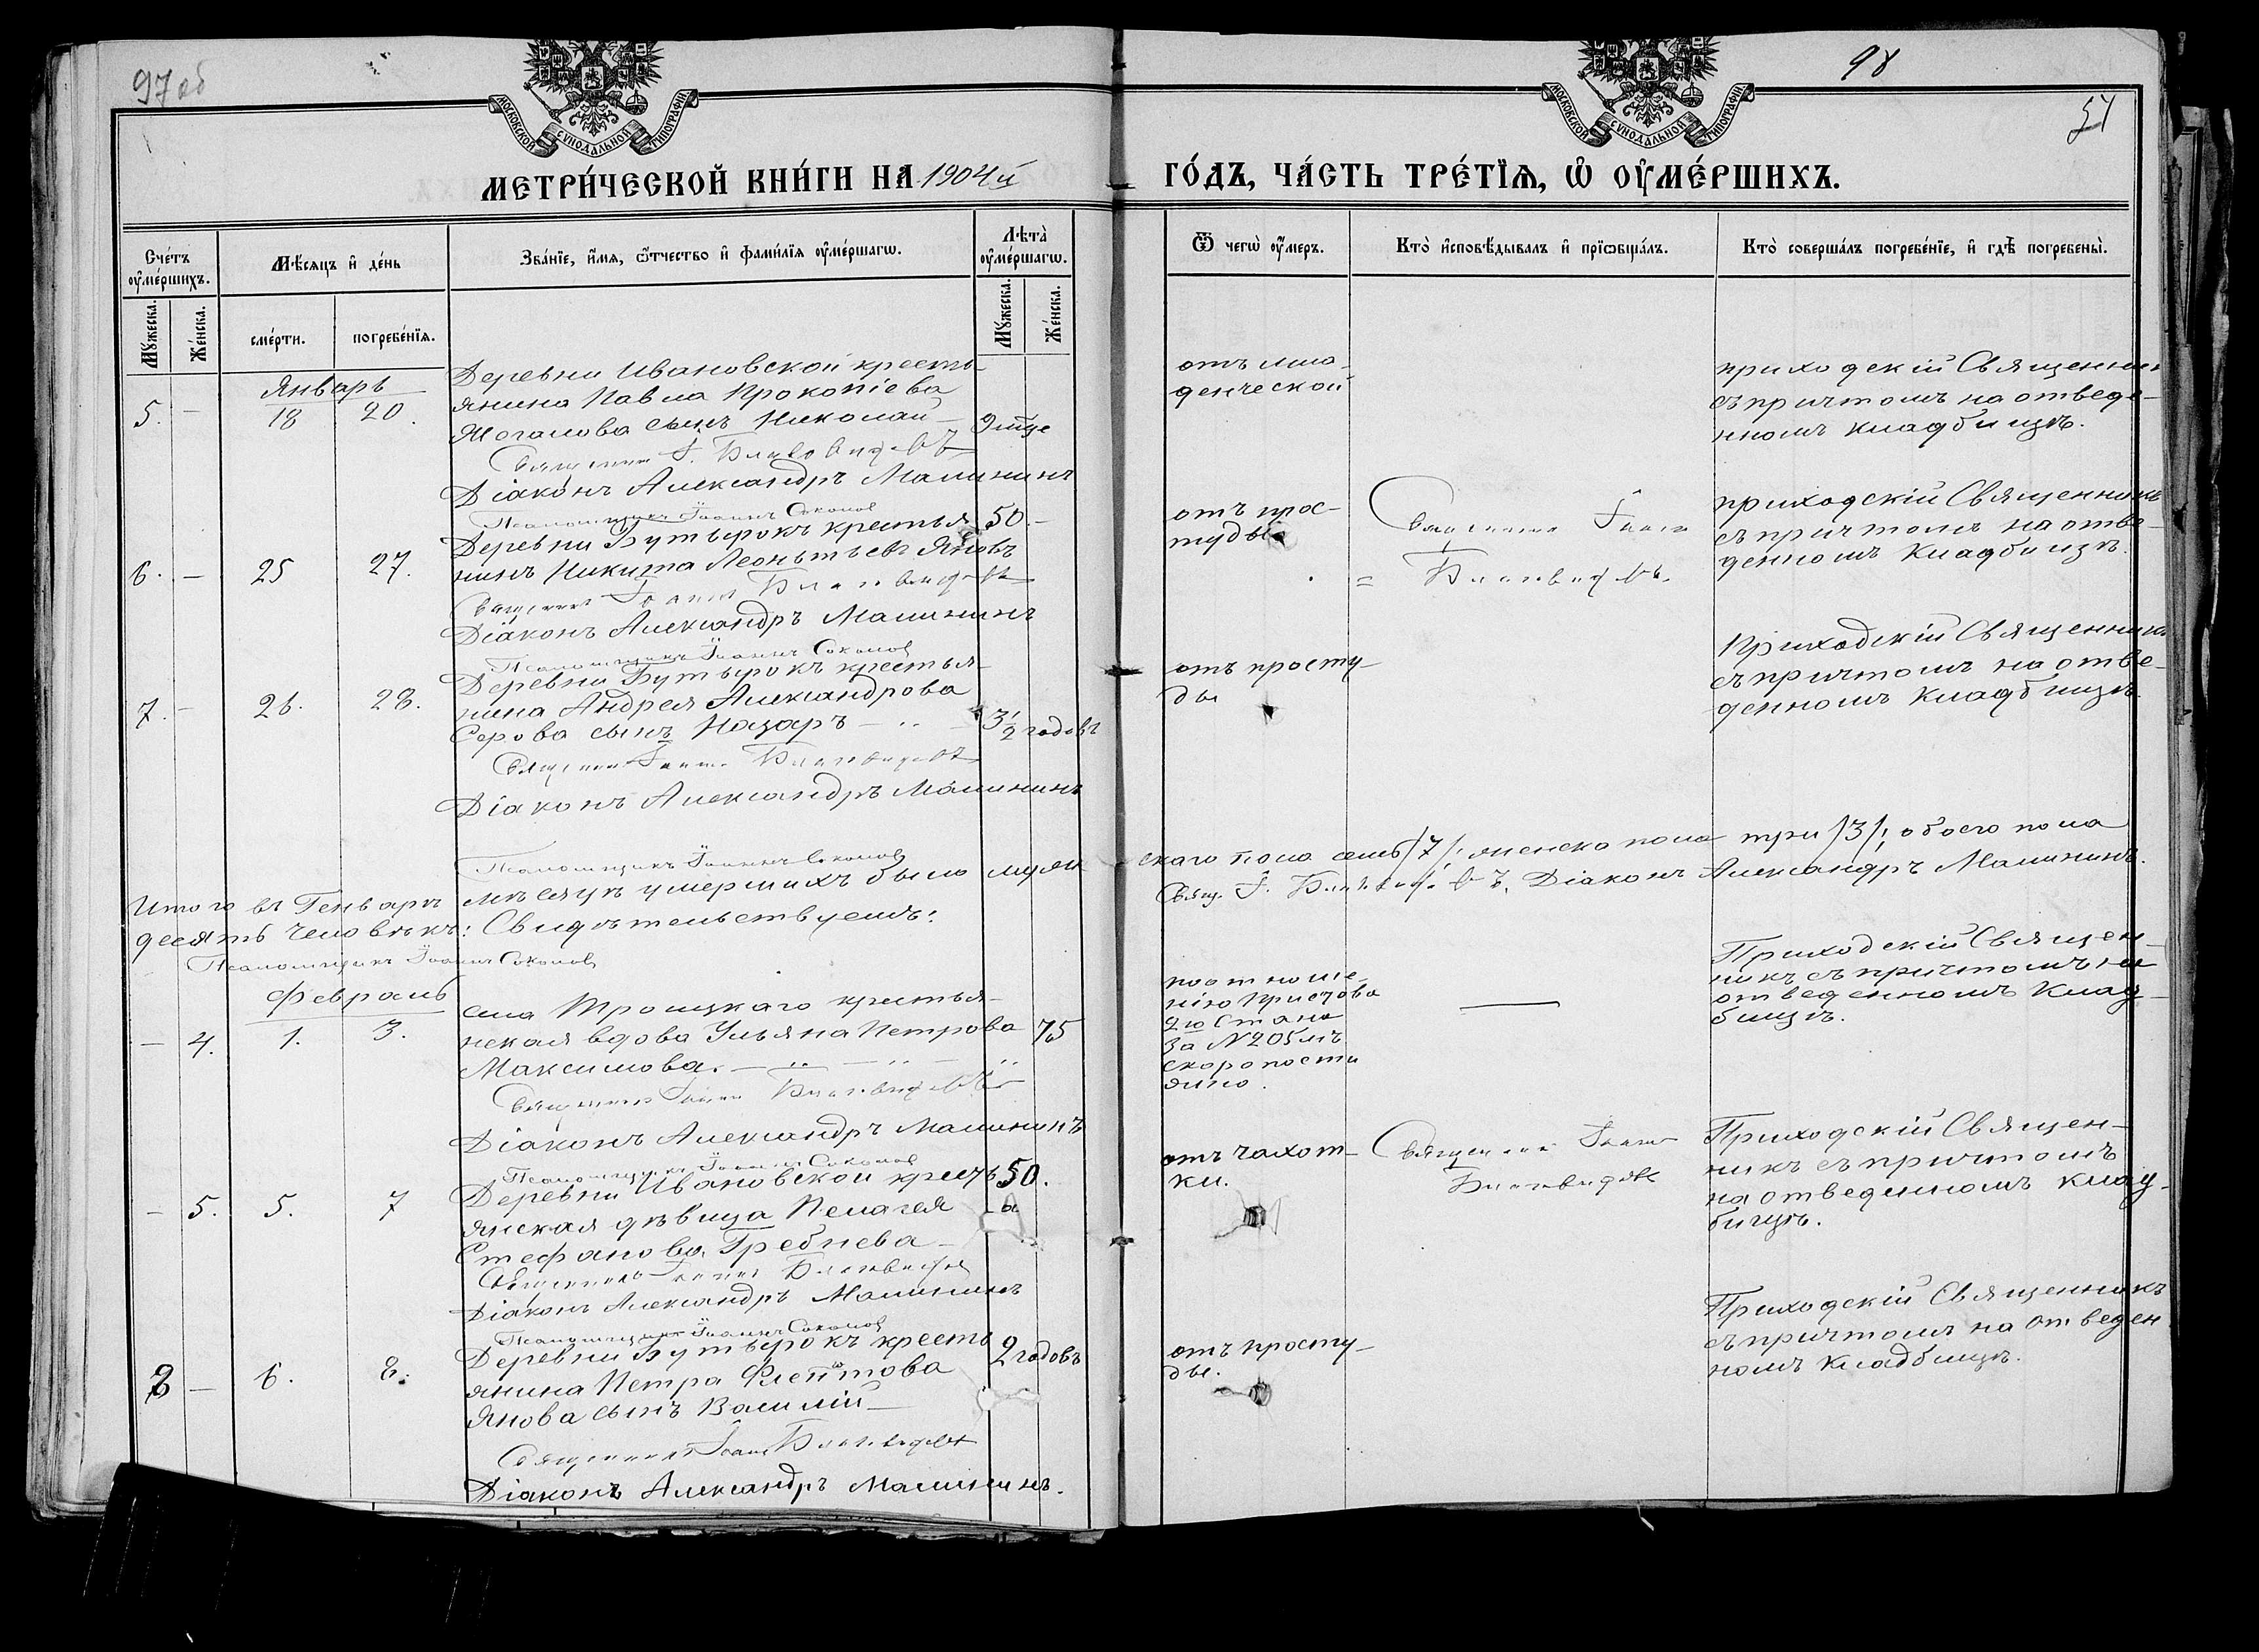 97 об
98
51
МОСКОВСКОЙ СѴНОДАЛЬНОЙ ТИПОГРАФІИ
МОСКОВСКОЙ СѴНОДАЛЬНОЙ ТИПОГРАФІИ
МЕТРИ́ЧЕСКОЙ КНИ́ГИ НА 1904й ГО́ДЪ, ЧА́СТЬ ТРЕ́ТЇѦ, Ѡ҆ ОУ҆МЕ́РШИХЪ.
Сче́тъ оу҆ме́ршихъ.
Мѣ́сяцъ и҆ де́нь
Зва́нїе, и҆́мѧ, ѻ҆́тчество и҆ фами́лїѧ оу҆ме́ршагѡ.
Лѣта̀ оу҆ме́ршагѡ.
Ѿ чегѡ̀ оу҆́меръ.
Кто̀ и҆сповѣ́дывалъ и҆ прїѡбща́лъ.
Кто̀ соверша́лъ погребе́нїе, и҆ гдѣ̀ погребены̀.
Му́жеска.
Же́нска.
сме́рти.
погребе́нїѧ.
Му́жеска.
Же́нска.
Январь
5. – 18 20.
Деревни Ивановской кресть-
янина Павла Прокопіева
Жогалова сынъ Николай – 9 мѣсце
Священникъ І. Благовидовъ
Діаконъ Александръ Малининъ
Псаломщикъ Іоаннъ Соколов
отъ мла-
денческой
приходскій Священник
съ причтомъ на отведе-
нномъ кладбищѣ.
6. – 25 27.
Деревни Бутырокъ крестья- 50. –
нинъ Никита Леонтьевъ Яновъ
Священникъ Іоаннъ Благовидовъ
Діаконъ Александръ Малининъ
Псаломщикъ Іоаннъ Соколов
отъ прос-
туды
Священникъ Іоаннъ
= Благовидовъ.
приходскій Священникъ
съ причтомъ на отве-
денномъ кладбищѣ.
7. – 26. 28.
Деревни Бутырокъ крестья-
нина Андрея Александрова
Серова сынъ Назаръ – 3 1/2 годовъ
Священникъ Іоаннъ Благовидовъ
Діаконъ Александръ Малининъ
Псаломщикъ Іоаннъ Соколов
отъ просту-
ды
Приходскій Священникъ
съ причтомъ на отве-
денномъ кладбищѣ.
Итого въ Генварѣ мѣсяцѣ умершихъ было муже скаго пола семь /7/; женска пола три /3/; обоего пола
десять человѣкъ: Свидѣтельствуемъ: Свящ. І. Благовидовъ, Діаконъ Александръ Малининъ.
Псаломщикъ Іоаннъ Соколов
Февраль
– 4. 1. 3.
села Троицкаго крестья-
нская вдова Ульяна Петрова 75
Максимова. –
Священникъ Іоаннъ Благовидовъ
Діаконъ Александръ Малининъ
Псаломщикъ Іоаннъ Соколов
по отноше-
нію Пристава
2го Стана
за №205мъ
скоропости
жно.
Приходскій Священ-
никъ съ причтомъ на
отведенномъ клад-
бищѣ.
– 5. 5. 7
Деревни Ивановской кресть 50.
янская дѣвица Пелагея
Стефанова Гребнева –
Священникъ Іоаннъ Благовидовъ
Діаконъ Александръ Малининъ
Псаломщикъ Іоаннъ Соколов
отъ чахот-
ки.
Священникъ Іоаннъ
Благовидовъ
Приходскій Священ-
никъ съ причтомъ
на отведенномъ клад-
бищѣ.
8 – 6. 8.
Деревни Бутырокъ кресть 2 годовъ
янина Петра Флегонтова
Янова сынъ Василій –
Священникъ Іоаннъ Благовидовъ
Діаконъ Александръ Малининъ.
отъ просту-
ды.
Приходскій Священникъ
съ причтомъ на отведен
номъ кладбищѣ.